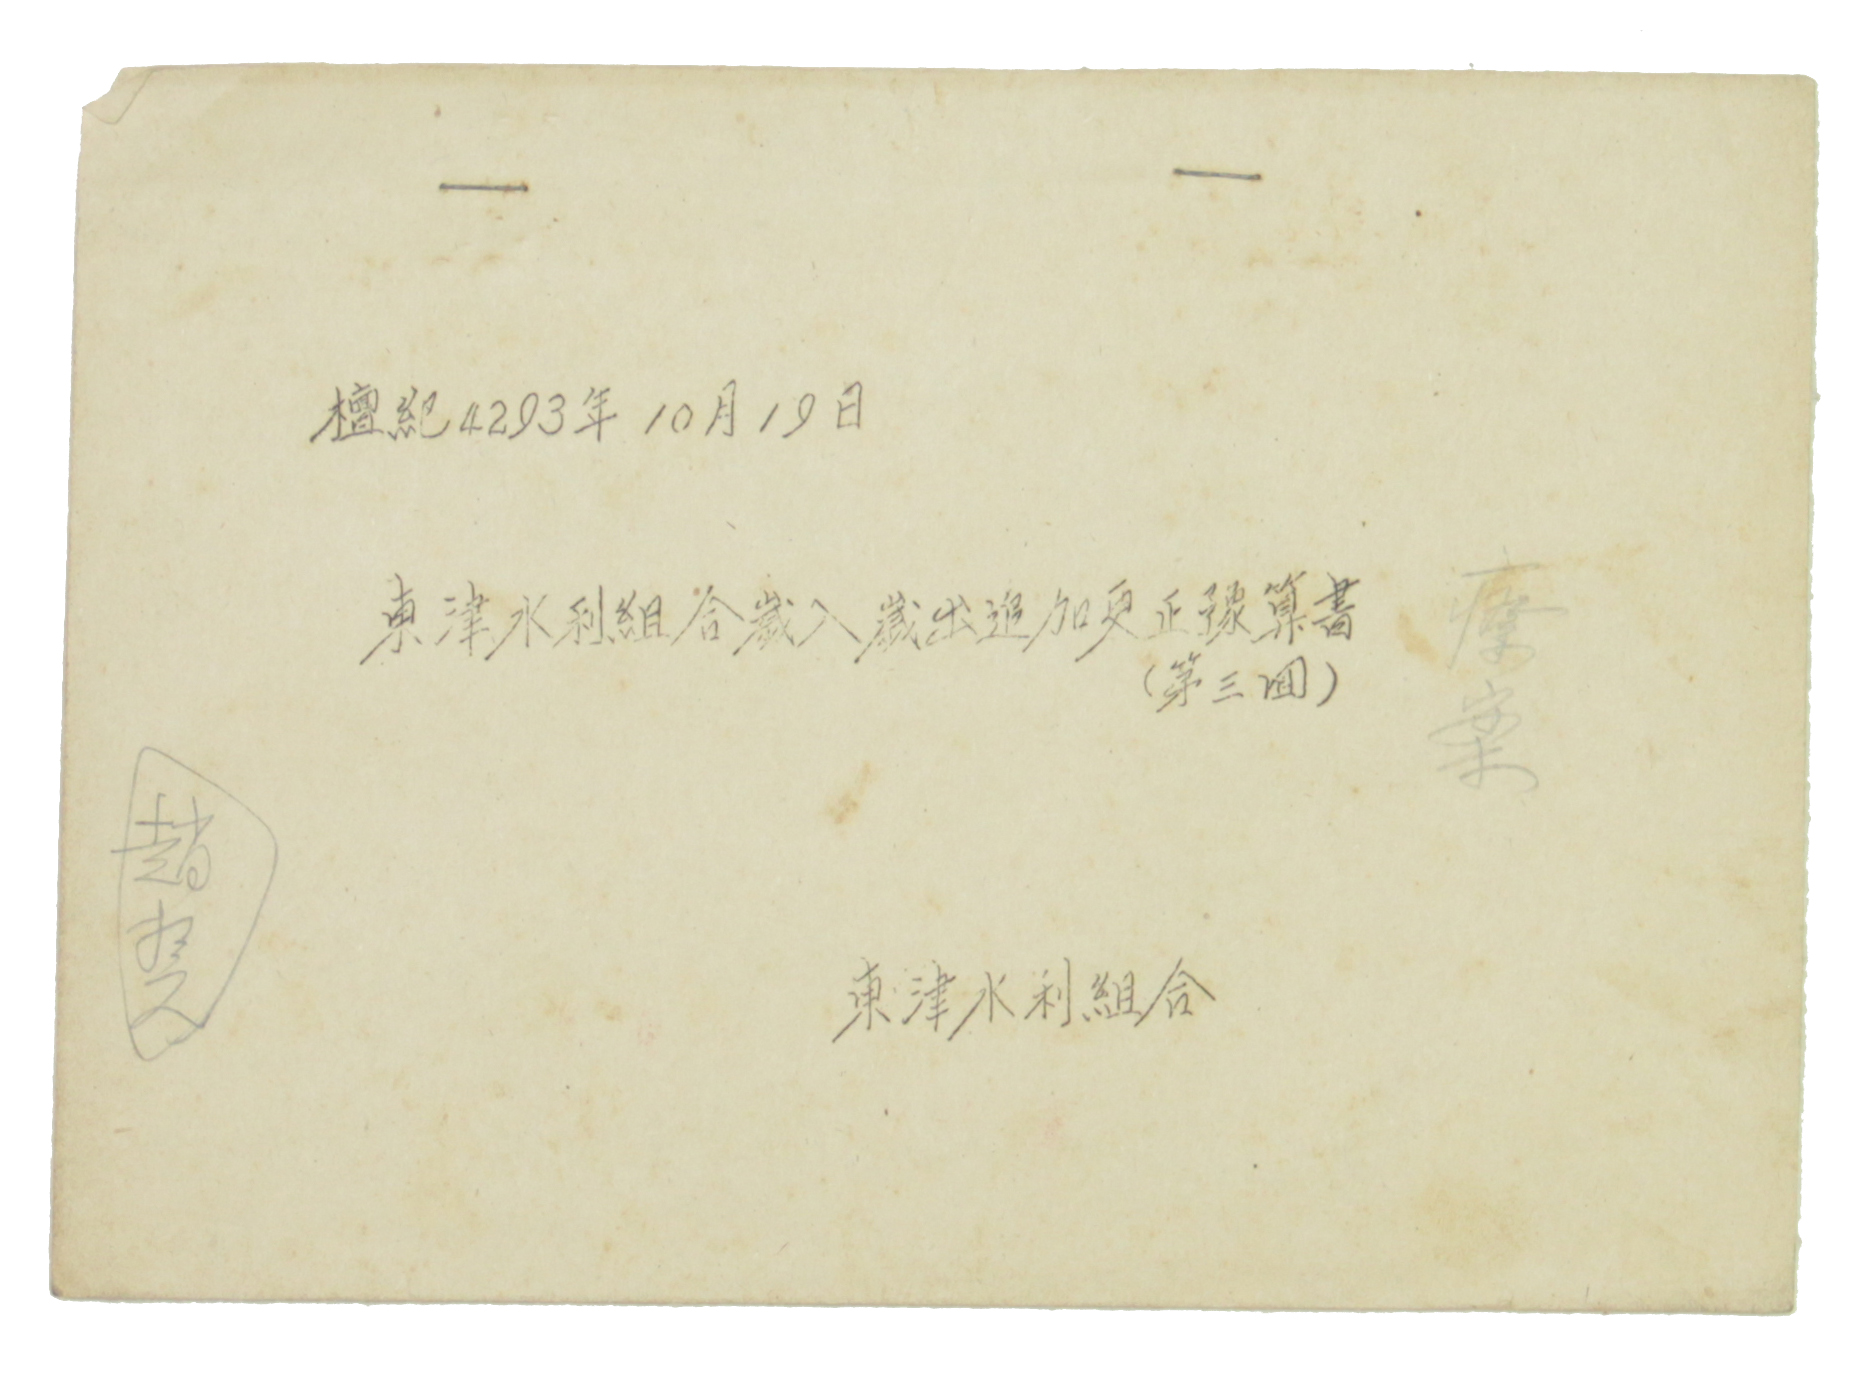 檀紀4293年 10月19日
東津水利組合歲入歲出追加更正豫算書
(第三回)
東津水利組合